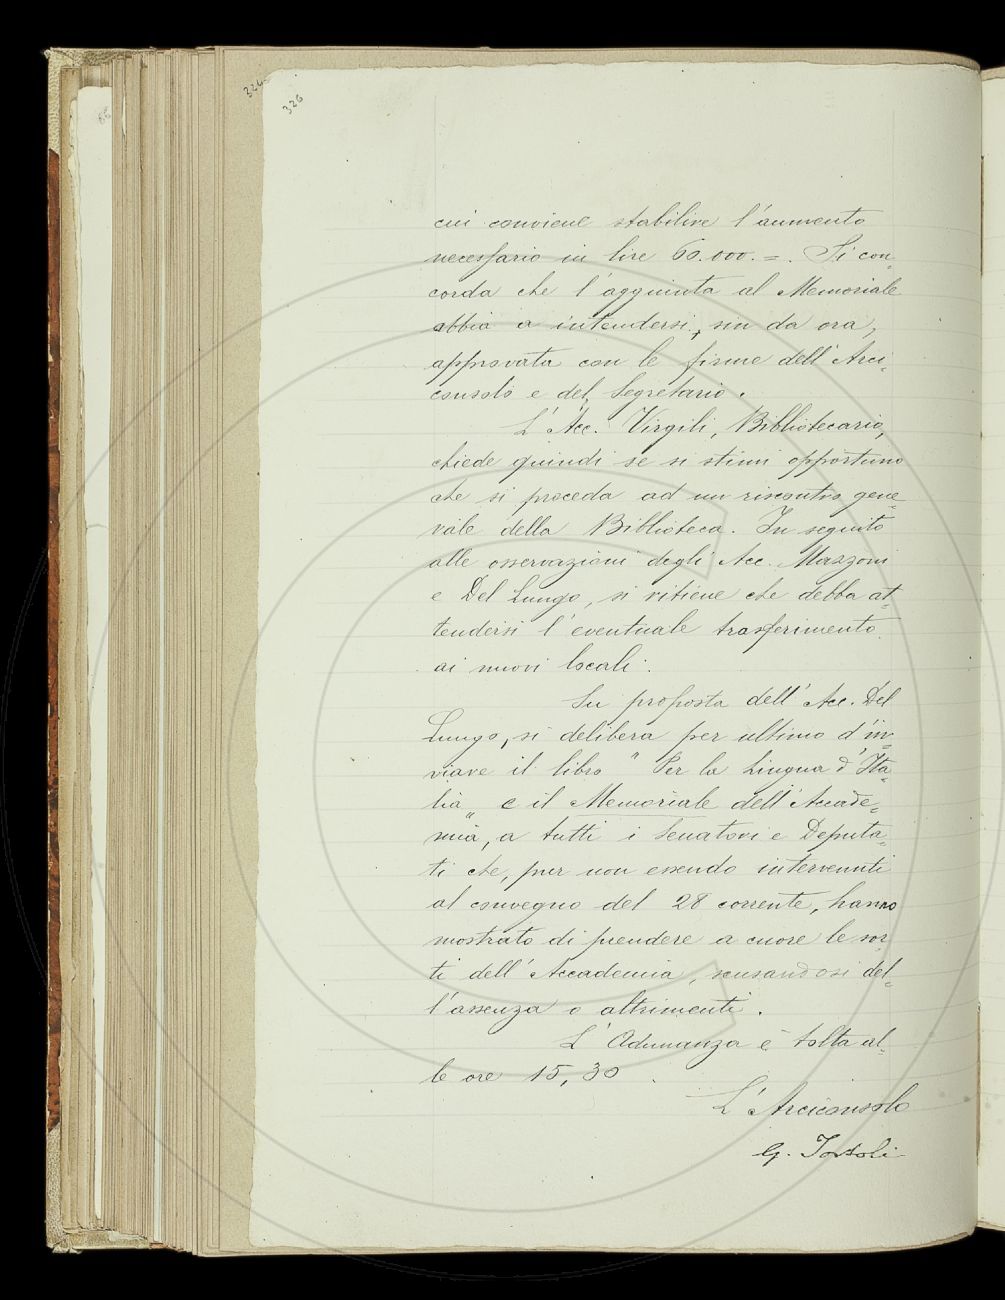 326
326
cui conviene stabilire l'aumento
necessario in lire 60.000.=. Si con-
corda che l'aggiunta al Memoriale
abbia a intendersi, sin da ora,
approvata con le firme dell'Arci-
consolo e del Segretario.
L'Acc. Virgili, Bibliotecario,
chiede quindi se si stimi opportuno
che si proceda ad un riscontro gene=
rale della Biblioteca. In seguito
alle osservazioni degli Acc. Mazzoni
e Del Lungo, si ritiene che debba at=
tendersi l'eventuale trasferimento
ai nuovi locali.
Su proposta dell'Acc. Del
Lungo, si delibera per ultimo d'in=
viare il libro "Per la Lingua d'Ita=
lia„ e il Memoriale dell'Accade=
mia, a tutti i Senatori e Deputa=
ti che, pur non essendo intervenuti
al convegno del 28 corrente, hanno
mostrato di prendere a cuore le sor=
ti dell'Accademia, scusandosi del=
l'assenza o altrimenti.
L'Adunanza è tolta al=
le ore 15,30.
L'Arciconsolo
G. Tortoli